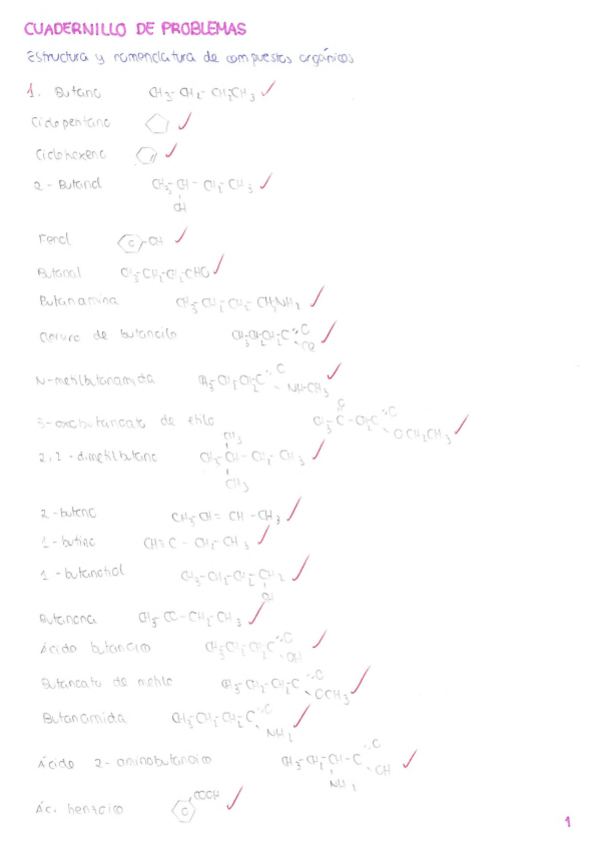 CUADERNILLO DE PROBLEMAS
Estructura y nomenclatura de compuestos orgánicos
1. Butano CH3-CH2-CH2CH3
Ciclopentano
Ciclohexeno
2-Butanol CH3-CH-CH2-CH3
OH
Fenol OH
Butanal CH3-CH2-CH2-CHO
Butanamina CH3-CH2-CH2-CH2NH2
Cloruro de butanoilo CH3CH2CH2-C O
Cl
N-metilbutanamida CH3CH2CH2C O
NH-CH3
3-oxobutanoato de etilo CH3-C-CH2C O
O
OCH2CH3
2,2-dimetilbutano CH3-CH-CH2-CH3
CH3
CH3
2-buteno CH3-CH=CH-CH3
1-butino CH≡C-CH2-CH3
1-butanotiol CH3-CH2-CH2-CH2
Butanona CH3-CO-CH2-CH3
Ácido butanoico CH3CH2CH2C O
OH
Butanoato de metilo CH3-CH2-CH2C O
OCH3
Butanamida CH3-CH2-CH2C O
NH2
Ácido 2-aminobutanoico CH3-CH2-CH-C O
OH
NH2
Ác. benzoico COOH
1